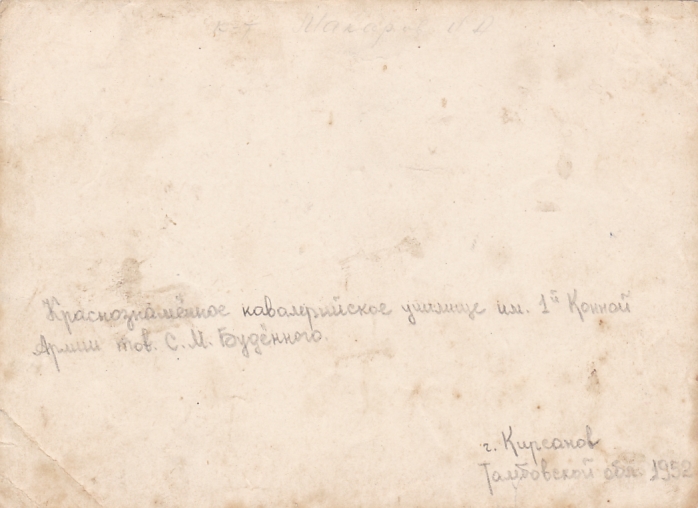 Макаров
Краснознамённое кавалерийское училище им. 1й Конной
Армии тов. С.М. Будённого.
г. Кирсанов
Тамбовской обл. 1952